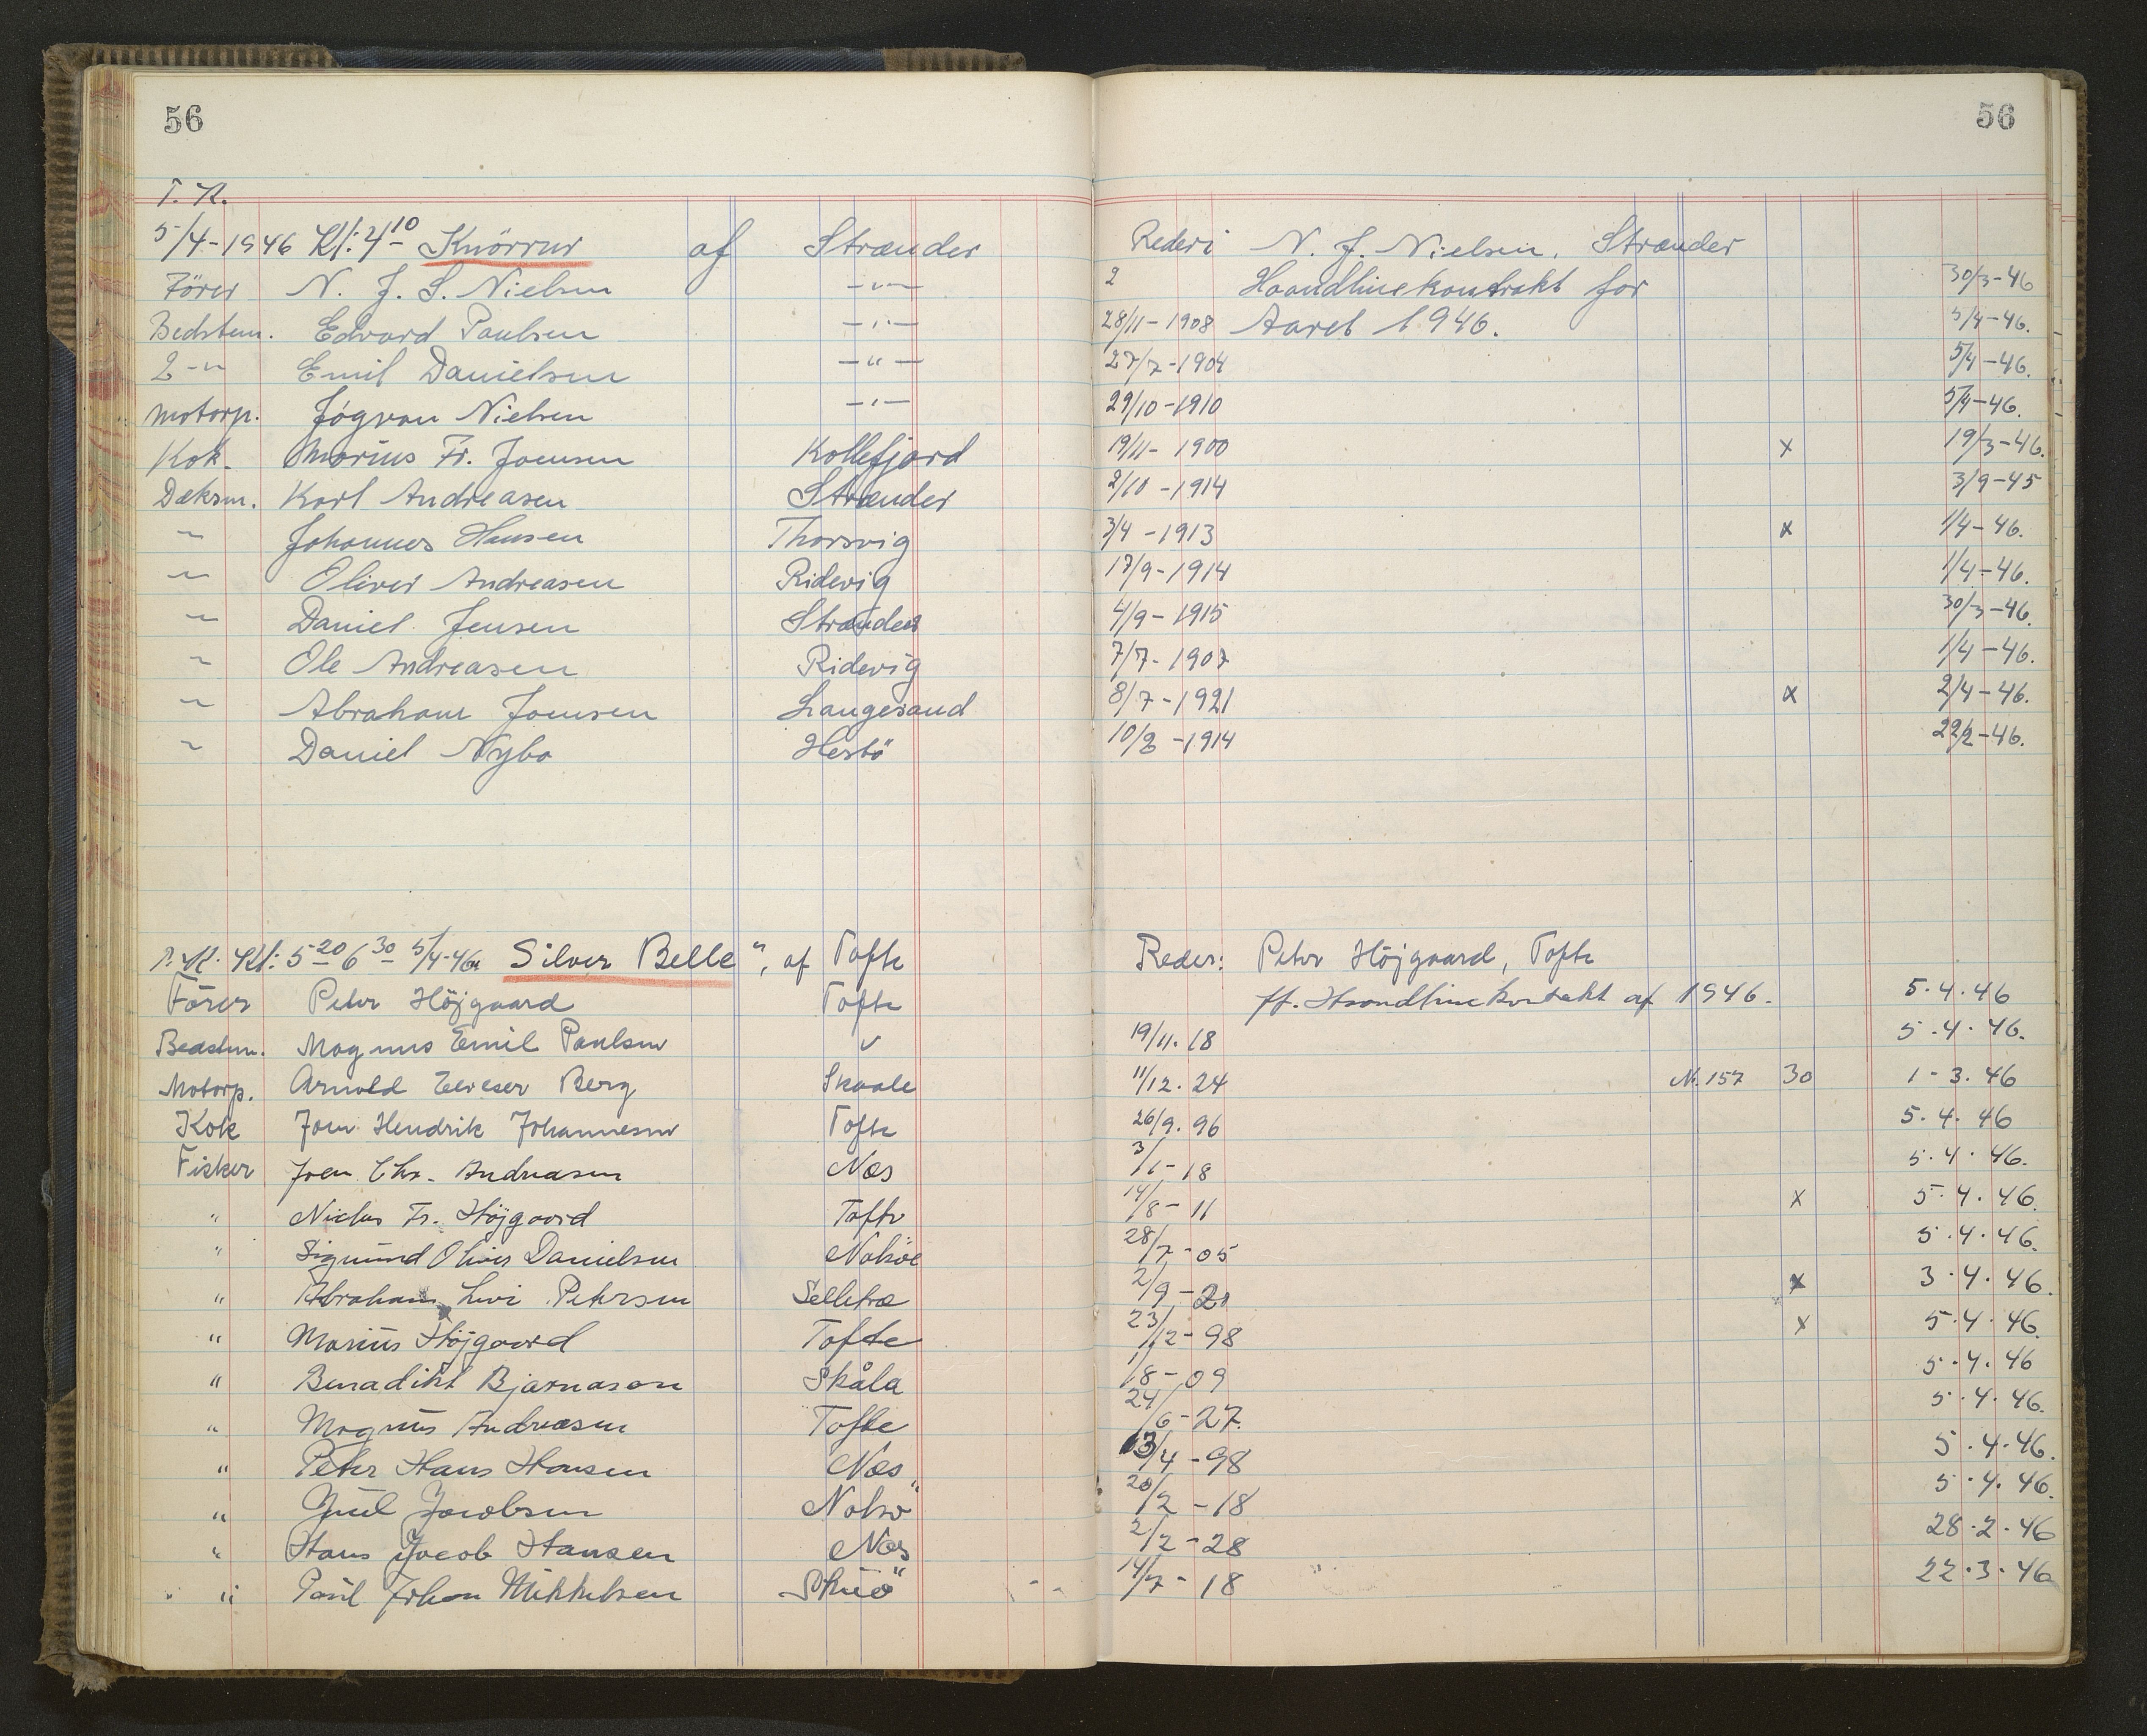 56
56
T. R.
5/4-1946 Kl: 4 10 Knörrur af Strænder Rederi N. J. Nielsen, Strænder
Förer N. J. S. Nielsen -"- 2 Haandlinekontrakt for 30/3-46
Bedstem. Edvard Paulsen -"- 28/11-1908 Aaret 1946. 5/4-46.
2 -"- Emil Danielsen -"- 27/7-1904 5/4-46.
Motorp. Jógvan Nielsen -"- 29/10-1910 5/4-46.
Kok. Marius Fr. Joensen Kollefjord 19/11-1900 x 19/3-46.
Dæksm. Karl Andreasen Strænder 2/10-1914 3/9-45
" Johannes Hansen Thorsvig 3/4-1913 x 1/4-46.
" Oliver Andreasen Ridevig 17/9-1914 1/4-46.
" Daniel Jensen Strænder 4/9-1915 30/3-46.
" Ole Andreasen Ridevig 7/7-1907 1/4-46.
" Abraham Joensen Langesand 8/7-1921 x 2/4-46.
" Daniel Nybo Hestö 10/8-1914 22/2-46.
Kl: 5 20 6 30 5/4-46 Silver Belle", af Tofte Reder: Peter Höjgaard, Tofte
Förer Peter Höjgaard Tofte ff. Haandlinekontrakt af 1946. 5.4.46
Bedstm. Magnus Emil Paulsen " 19/11.18 5.4.46.
Motorp. Arnold Berg Skaale 11/12.24 N. 157 30 1-3.46
Kok Joen Hendrik Johannesen Tofte 26/9.96 5.4.46
Fisker Joen Chr. Andreasen Næs 3/1-18 5.4.46.
" Niclas Fr. Höjgaard Tofte 14/8-11 x 5.4.46.
" Sigmund Oliver Danielsen Nolsöe 28/7-05 5.4.46.
" Abraham Levi Petersen Selletræ 2/9-20 x 3.4.46.
" Marius Höjgaard Tofte 23/12-98 x 5.4.46.
" Benadikt Bjarnason Skåla 1/8-09 5.4.46
" Magnus Andreasen Tofte 24/6-27. 5.4.46.
" Peter Hans Hansen Næs 13/4-98 5.4.46.
" Juul Jacobsen Nolsö 20/12-18 5.4.46.
" Hans Jacob Hansen Næs 2/2-28 28.2.46
" Paul Johan Mikkelsen Skuö 14/7-18 22.3.46